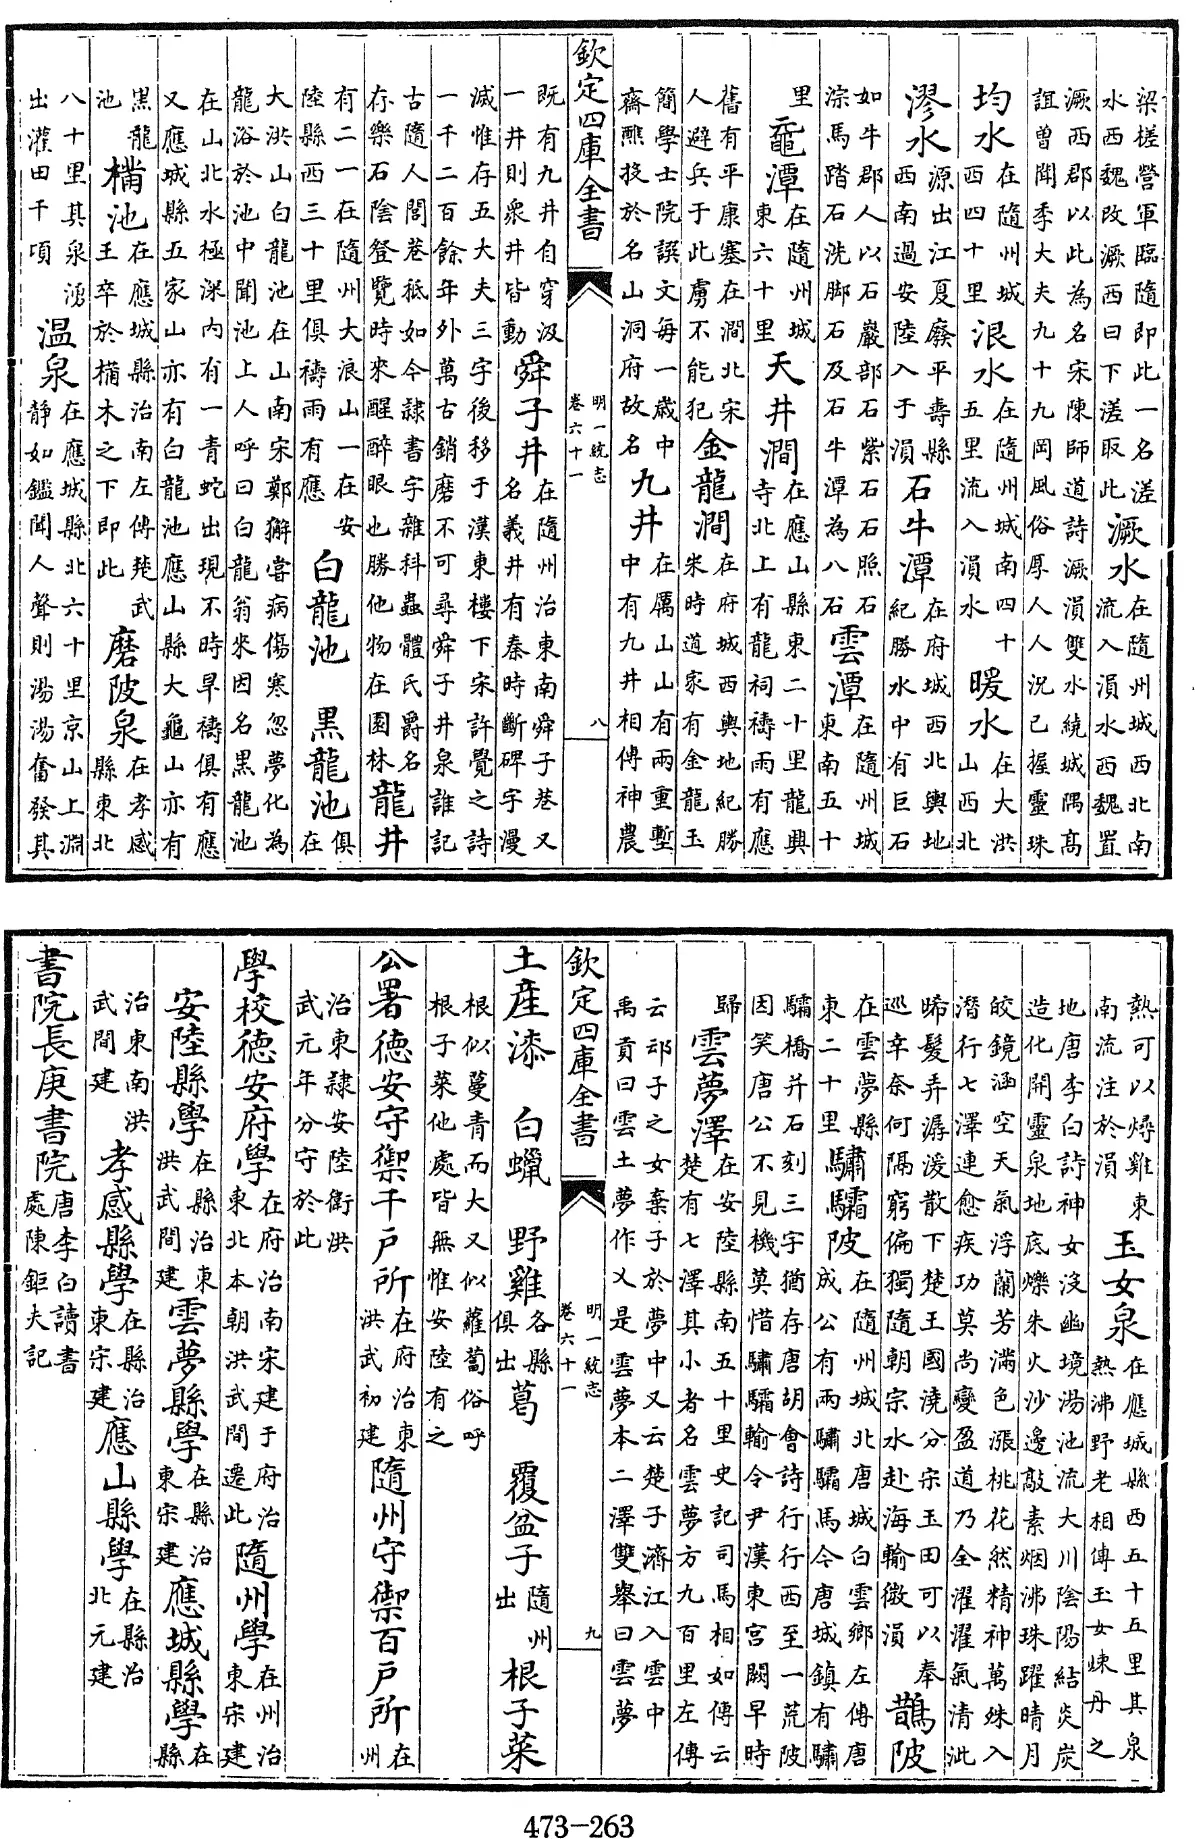 梁槎營軍臨隨即此一名溠
水西魏改㵐西曰下溠取此
㵐水
在隨州城西北南
流入溳水西魏置
㵐西郡以此為名宋陳師道詩㵐溳雙水繞城隅髙
誼曽聞季大夫九十九岡風俗厚人人况已握靈珠
均水
在隨州城
西四十里
浪水
在隨州城南四十
五里流入溳水
暖水
在大洪
山西北
漻水
源出江夏廢平壽縣
西南過安陸入于溳
石牛潭
在府城西北輿地
紀勝水中有巨石
如牛郡人以石巖部石紫石石照石
淙馬踏石洗脚石及石牛潭為八石
雲潭
在隨州城
東南五十
里
黿潭
在隨州城
東六十里
天井澗
在應山縣東二十里龍興
寺北上有龍祠禱雨有應
舊有平康塞在澗北宋
人避兵于此虜不能犯
金龍澗
在府城西輿地紀勝
宋時道家有金龍玉
簡學士院譔文毎一歲中
齋醮投於名山洞府故名
九井
在厲山山有兩重塹
中有九井相傳神農
欽定四庫全書
明一統志
卷六十一
八
既有九井自穿汲
一井則衆井皆動
舜子井
在隨州治東南舜子巷又
名義井有秦時斷碑字漫
滅惟存五大夫三字後移于漢東樓下宋許覺之詩
一千二百餘年外萬古銷磨不可尋舜子井泉誰記
古隨人閭巷秪如今隷書字雜科蟲體氏爵名
存樂石陰登覽時來醒醉眼也勝他物在園林
龍井
有二一在隨州大浪山一在安
陸縣西三十里俱禱雨有應
白龍池
黒龍池
俱
在
大洪山白龍池在山南宋鄭獬嘗病傷寒忽夢化為
龍浴於池中聞池上人呼曰白龍翁來因名黒龍池
在山北水極深内有一青蛇出現不時旱禱俱有應
又應城縣五家山亦有白龍池應山縣大龜山亦有
黒龍
池
樠池
在應城縣治南左傳楚武
王卒於樠木之下即此
磨陂泉
在孝感
縣東北
八十里其泉湧
出灌田千頃
温泉
在應城縣北六十里京山上淵
靜如鑑聞人聲則湯湯奮發其
熱可以燖雞東
南流注於溳
玉女泉
在應城縣西五十五里其泉
熱沸野老相傳玉女煉丹之
地唐李白詩神女沒幽境湯池流大川陰陽結炎炭
造化開靈泉地底爍朱火沙邊歊素烟沸珠躍晴月
皎鏡涵空天氣浮蘭芳滿色漲桃花然精神萬殊入
潛行七澤連愈疾功莫尚變盈道乃全濯濯氣清泚
晞髮弄潺湲散下楚王國澆分宋玉田可以奉
巡幸奈何隔窮偏獨隨朝宗水赴海輸微溳
鵲陂
在雲夢縣
東二十里
驌驦陂
在隨州城北唐城白雲鄉左傳唐
成公有兩驌驦馬今唐城鎮有驌
驦橋并石刻三字猶存唐胡會詩行行西至一荒陂
因笑唐公不見機莫惜驌驦輸令尹漢東宮闕早時
歸
雲夢澤
在安陸縣南五十里史記司馬相如傳云
楚有七澤其小者名雲夢方九百里左傳
云䢵子之女棄子於夢中又云楚子濟江入雲中
禹貢曰雲土夢作乂是雲夢本二澤雙舉曰雲夢
欽定四庫全書
明一統志
卷六十一
九
土産漆
白蠟
野雞
各縣
俱出
葛
覆盆子
隨州
出
根子菜
根似蔓青而大又似蘿蔔俗呼
根子菜他處皆無惟安陸有之
公署德安守禦千戸所
在府治東
洪武初建
隨州守禦百戸所
在
州
治東隸安陸衛洪
武元年分守於此
學校德安府學
在府治南宋建于府治
東北本朝洪武間遷此
隨州學
在州治
東宋建
安陸縣學
在縣治東
洪武間建
雲夢縣學
在縣治
東宋建
應城縣學
在
縣
治東南洪
武間建
孝感縣學
在縣治
東宋建
應山縣學
在縣治
北元建
書院長庚書院
唐李白讀書
處陳鉅夫記
473-263